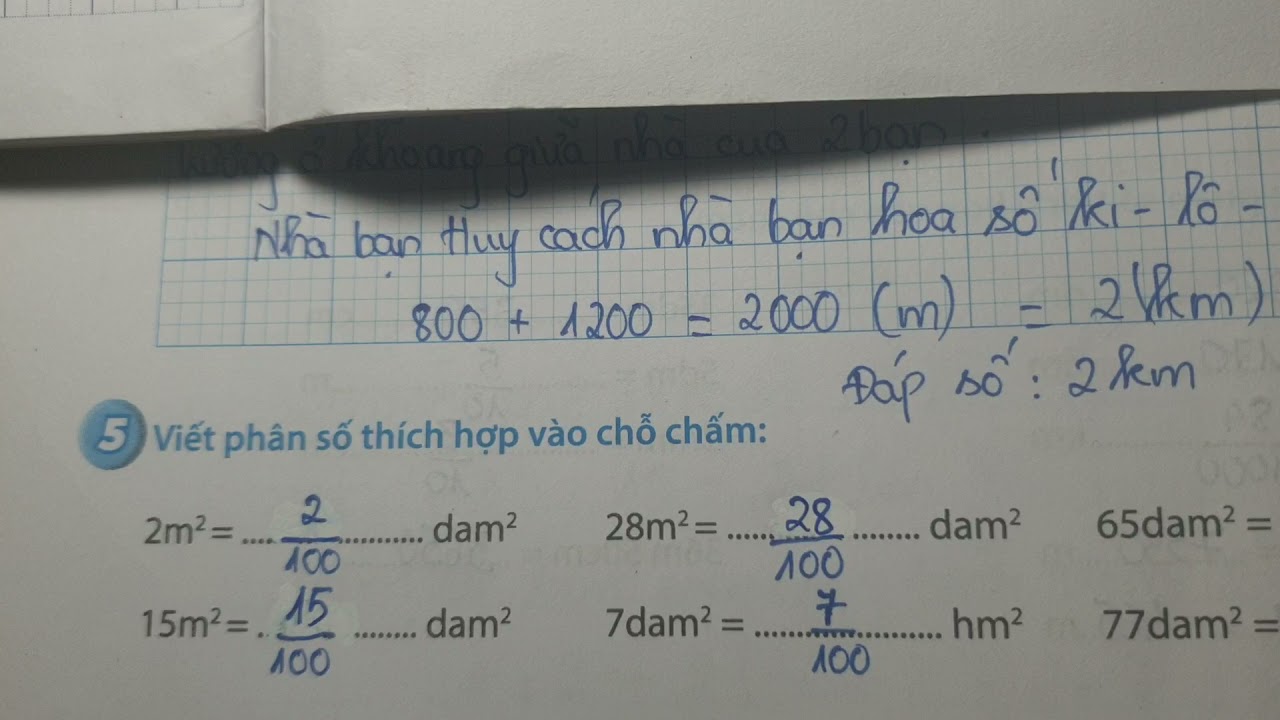 hướng ở khoảng giữa nhà của 2 bạn.
Nhà bạn Huy cách nhà bạn hoa số ki - lô -
800 + 1200 = 2000 (m) = 2 (km)
Đáp số : 2 km
5 Viết phân số thích hợp vào chỗ chấm:
2m² = .... 2/100 ........... dam² 28m² = ...... 28/100 ........ dam² 65dam² =
15m² = . 15/100 ........ dam² 7dam² = ........ 7/100 ........... hm² 77dam² =